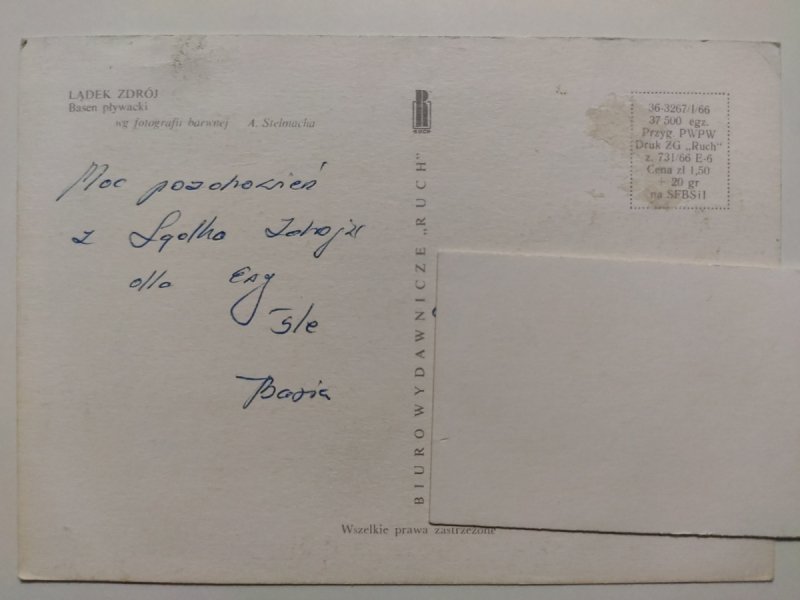 LĄDEK ZDRÓJ
Basen pływacki
wg fotografii barwnej A. Stelmacha
Moc pozdrowień
z Lądka Zdroju
dla Ezy
śle
Basia
BIURO WYDAWNICZE „RUCH”
RUCH
36-3267/1/66
37 500 egz.
Przyg. PWPW
Druk ZG „Ruch”
z. 731/66 E-6
Cena zł 1,50
+ 20 gr
na SFBSiI
Wszelkie prawa zastrzeżone